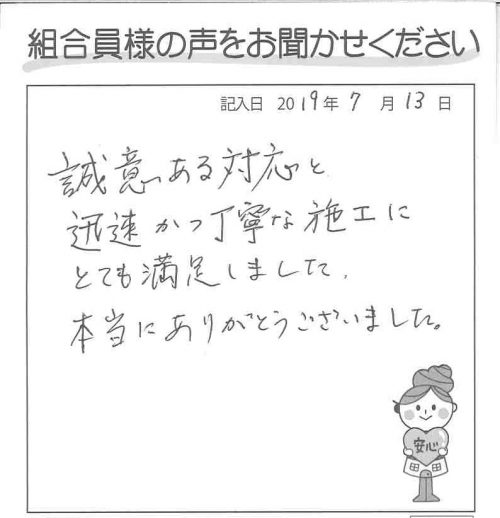 組合員様の声をお聞かせください
記入日 2019年 7 月 13 日
誠意ある対応と
迅速かつ丁寧な施工に
とても満足しました.
本当にありがとうございました。
安心